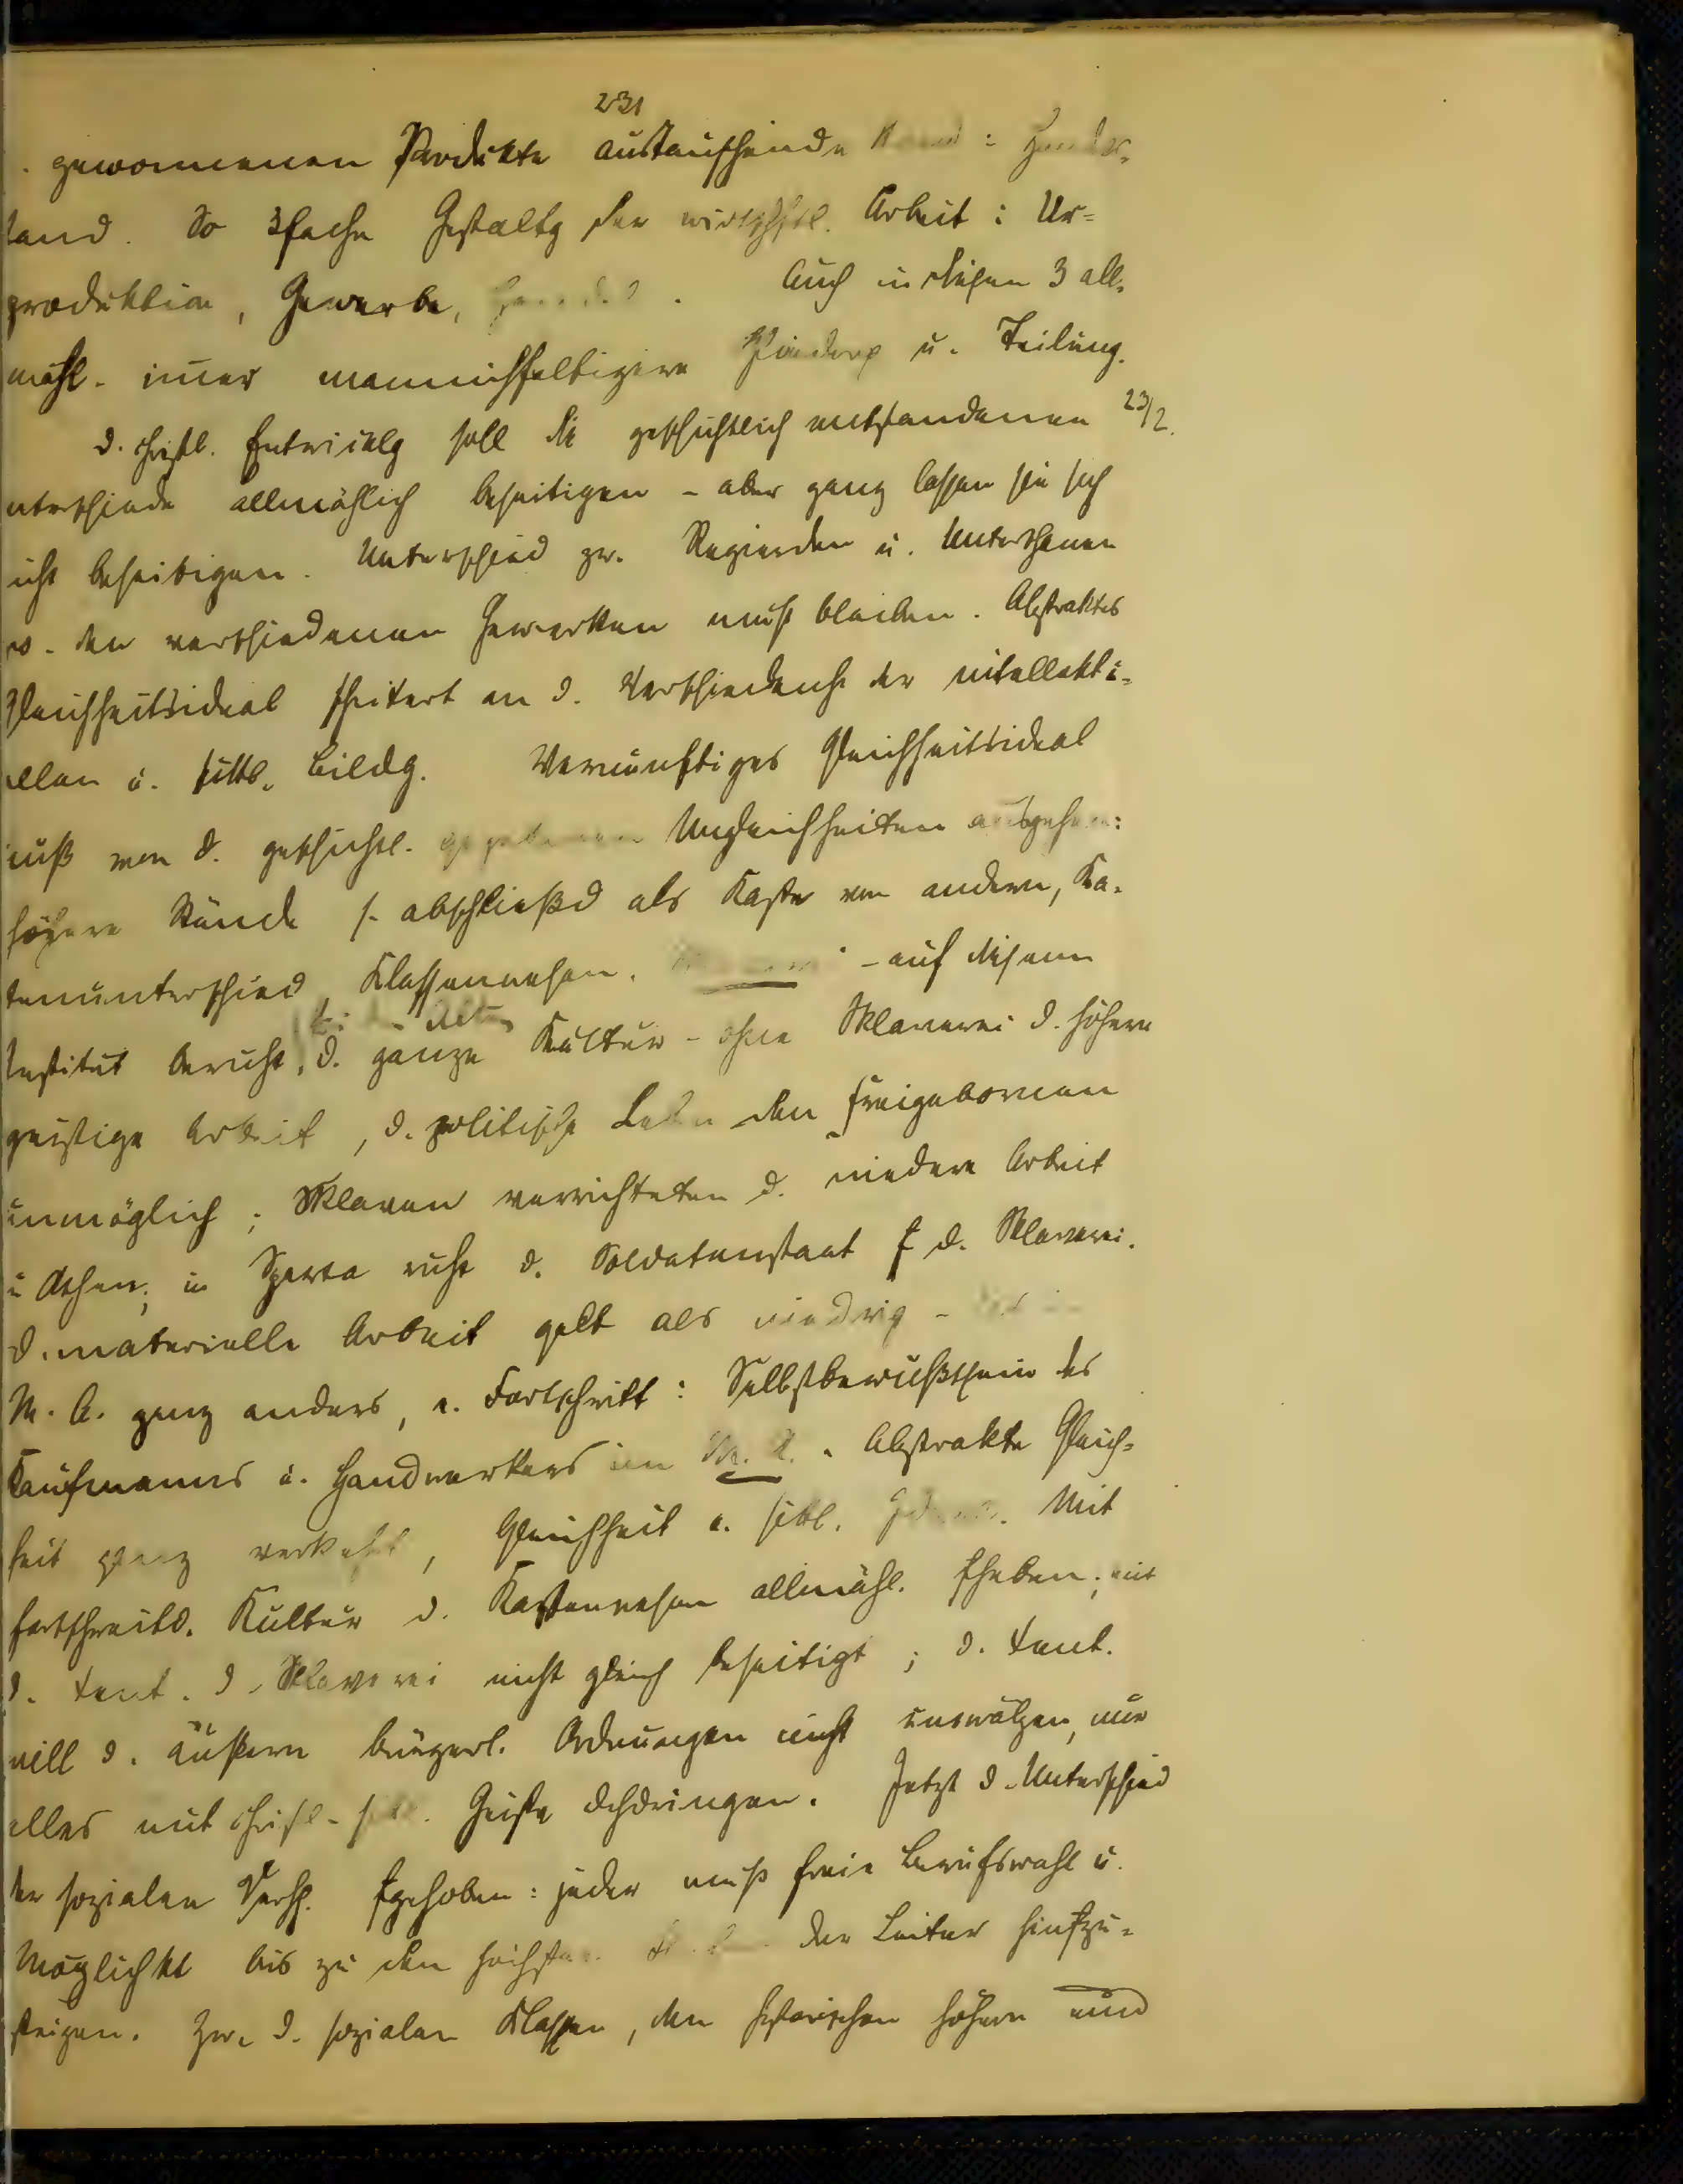 231
gewonnenen Produkte austauschende
tand. So 3fache Gestaltg der wirtschftl. Arbeit: Ur=
produktion, Gewerbe, . Auch in diesen 3 all=
mähl. immer mannichfaltigere u. Teilung.
d. christl. Entwicklg soll die geschichtlich entstandenen 23/2.
nterschiede allmählich beseitigen - aber ganz lassen sie sich
icht beseitigen. Unterschied zw. Regierden u. Unterthanen
w. den verschiedenen Gewerken muß bleiben. Abstraktes
Gleichheitsideal scheitert an d. Verschiedenht der intellektu=
ellen u. sittl. Bildg. Vernünftiges Gleichheitsideal
muß von d. geschichtl. gegebenen Ungleichheiten ausgehen:
höhere Stände s. abschließd als Kaste von andern, Ka=
tenunterschied, Klassenwesen. - auf diesem
Institut beruht, d. ganze Kultur - ohne Sklaverei d. höhere
bei den Alten
geistige Arbeit, d. politische Leben den freigebornen
unmöglich; Sklaven verrichteten d. niedere Arbeit
in Athen; in Sparta ruht d. Soldatenstaat f d. Sklaverei.
d. materielle Arbeit galt als niedrig -
M. A. ganz anders, e. Fortschritt: Selbstbewußtsein des
Kaufmanns u. Handwerkers im M. A. Abstrakte Gleich=
heit ganz verkehrt, Gleichheit e. sittl. Mit
fortschreitd. Kultur d. Kastenwesen allmähl. fheben; mit
d. Xent. d. Sklaverei nicht gleich beseitigt; d. Xent.
will d. äußern bürgerl. Ordnungen nicht umwälzen, nur
alles mit christl.-sittl. Geiste dchdringen. Jetzt d. Unterschied
der sozialen Versch. fgehoben: jeder muß freie Berufswahl u.
Möglichkt bis zu den höchsten der Leiter hinfzu=
steigen. Zw. d. sozialen Klassen, den historischen höhern und